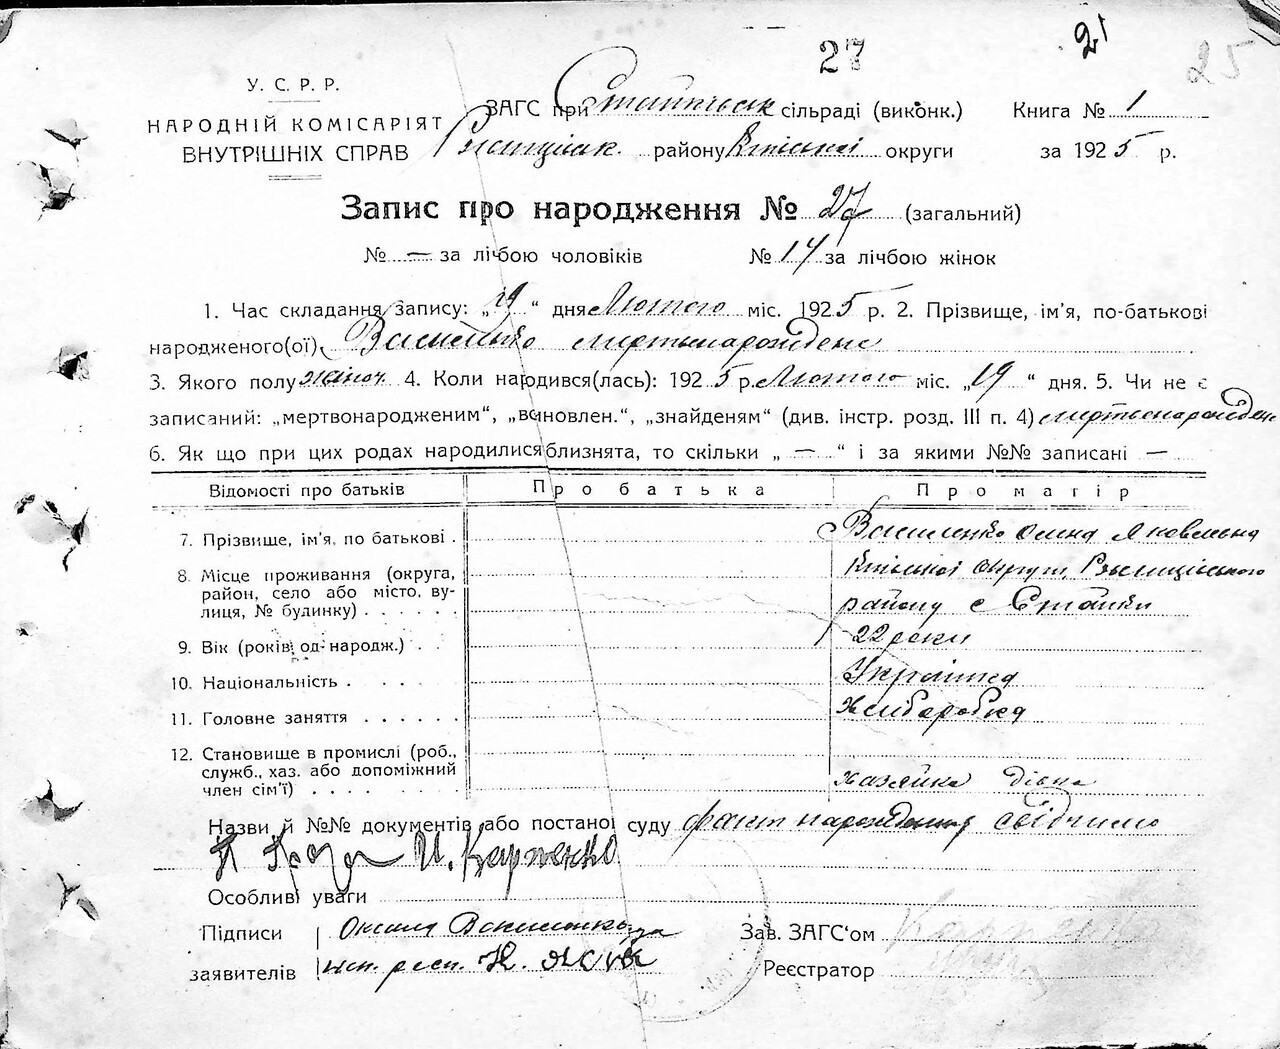 27 21 25
У. С. Р. Р.
НАРОДНІЙ КОМІСАРІЯТ
ВНУТРІШНІХ СПРАВ
ЗАГС при Стайківськ сільраді (виконк.) Книга № 1
району Київської округи за 1925 р.
Запис про народження № 27 (загальний)
№ — за лічбою чоловіків № 14 за лічбою жінок
1. Час складання запису: „ “ дня Лютого міс. 1925 р. 2. Прізвище, ім'я, по-батькові
народженого(ої) Василенко мертвонарождене
3. Якого полу жіноч 4. Коли народився(лась): 1925 р. Лютого міс. „19“ дня. 5. Чи не є
записаний: „мертвонародженим“, „виновлен.“, „знайденям“ (див. інстр. розд. III п. 4) мертвонарожден
6. Як що при цих родах народилися близнята, то скільки „ — “ і за якими №№ записані —
Відомості про батьків Про батька Про матір
7. Прізвище, ім'я, по батькові . Василенко Олена Яковлевна
8. Місце проживання (округа, Київської округи, Ржищівського
район, село або місто, ву- району с Стайки
лиця, № будинку) . . . . . .
9. Вік (років од народж.) . . 22 роки
10. Національність . . . . . Українка
11. Головне заняття . . . . . . Хліборобка
12. Становище в промислі (роб.,
служб., хаз. або допоміжний
член сім'ї) . . . . . . . . хазяйка дівка
Назви й №№ документів або постанов суду факт народження свідчимо
И. Карпенко
Особливі уваги
Підписи Оксана Василенкова
заявителів
Зав. ЗАГС'ом Карпенко
Реєстратор